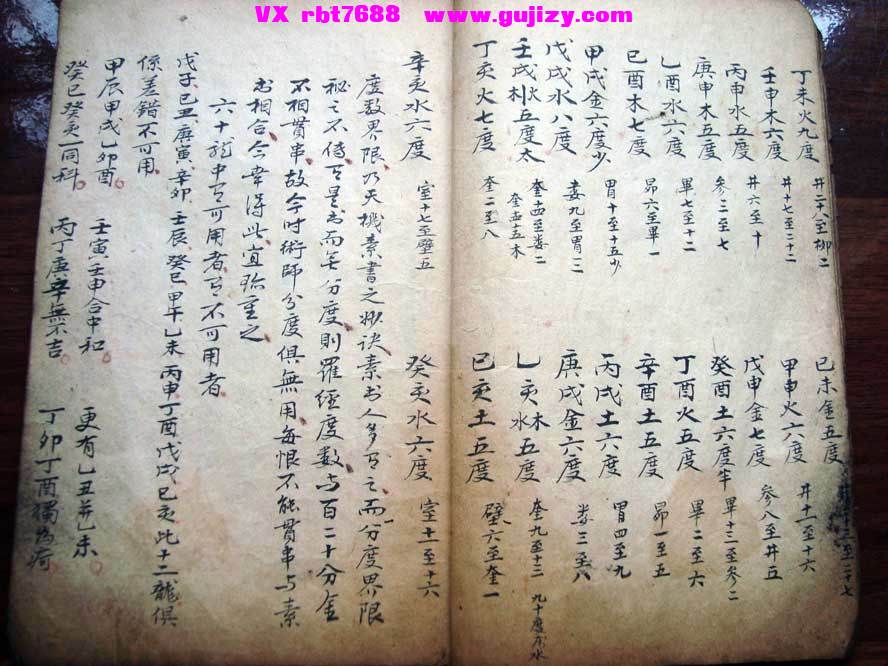 VX rbt7688 www.gujizy.com
丁未火九度 井二十八至柳二 己未金五度
壬申木六度 井十七至二十二 甲申火六度 井十一至十六
丙申水五度 井六至十 戊申金七度 参八至井五
庚申木五度 参三至七 癸酉土六度半 畢十三至参二
乙酉水六度 畢七至十二 丁酉火五度 畢二至六
己酉木七度 昴六至畢一 辛酉土五度 昴一至五
甲戌金六度少 胃十至十五少 丙戌土六度 胃四至九
戊戌水八度 婁九至胃三 庚戌金六度 婁三至八
壬戌木火五度太 奎十四至婁二 奎十五木 乙亥木水五度 奎九至十三 九十度亦水
丁亥火七度 奎二至八 己亥土五度 壁六至奎一
辛亥水六度 室十七至壁五 癸亥水六度 室十一至十六
度数界限乃天機素書之妙訣素書人多有之而分度界限
秘之不傳有是书而无分度則羅經度数与百二十分金
不相貫串故今时術師分度俱無用每恨不能貫串与素
书相合今幸得此宜珍重之
六十龍中有可用者有不可用者
戊子己丑庚寅辛卯壬辰癸巳甲午乙未丙申丁酉戊戌己亥此十二龍俱
係差錯不可用
甲辰甲戌乙卯酉 壬寅壬申合中和 更有乙丑并乙未
癸巳癸亥一同科 丙丁庚辛無不吉 丁卯丁酉獨為奇